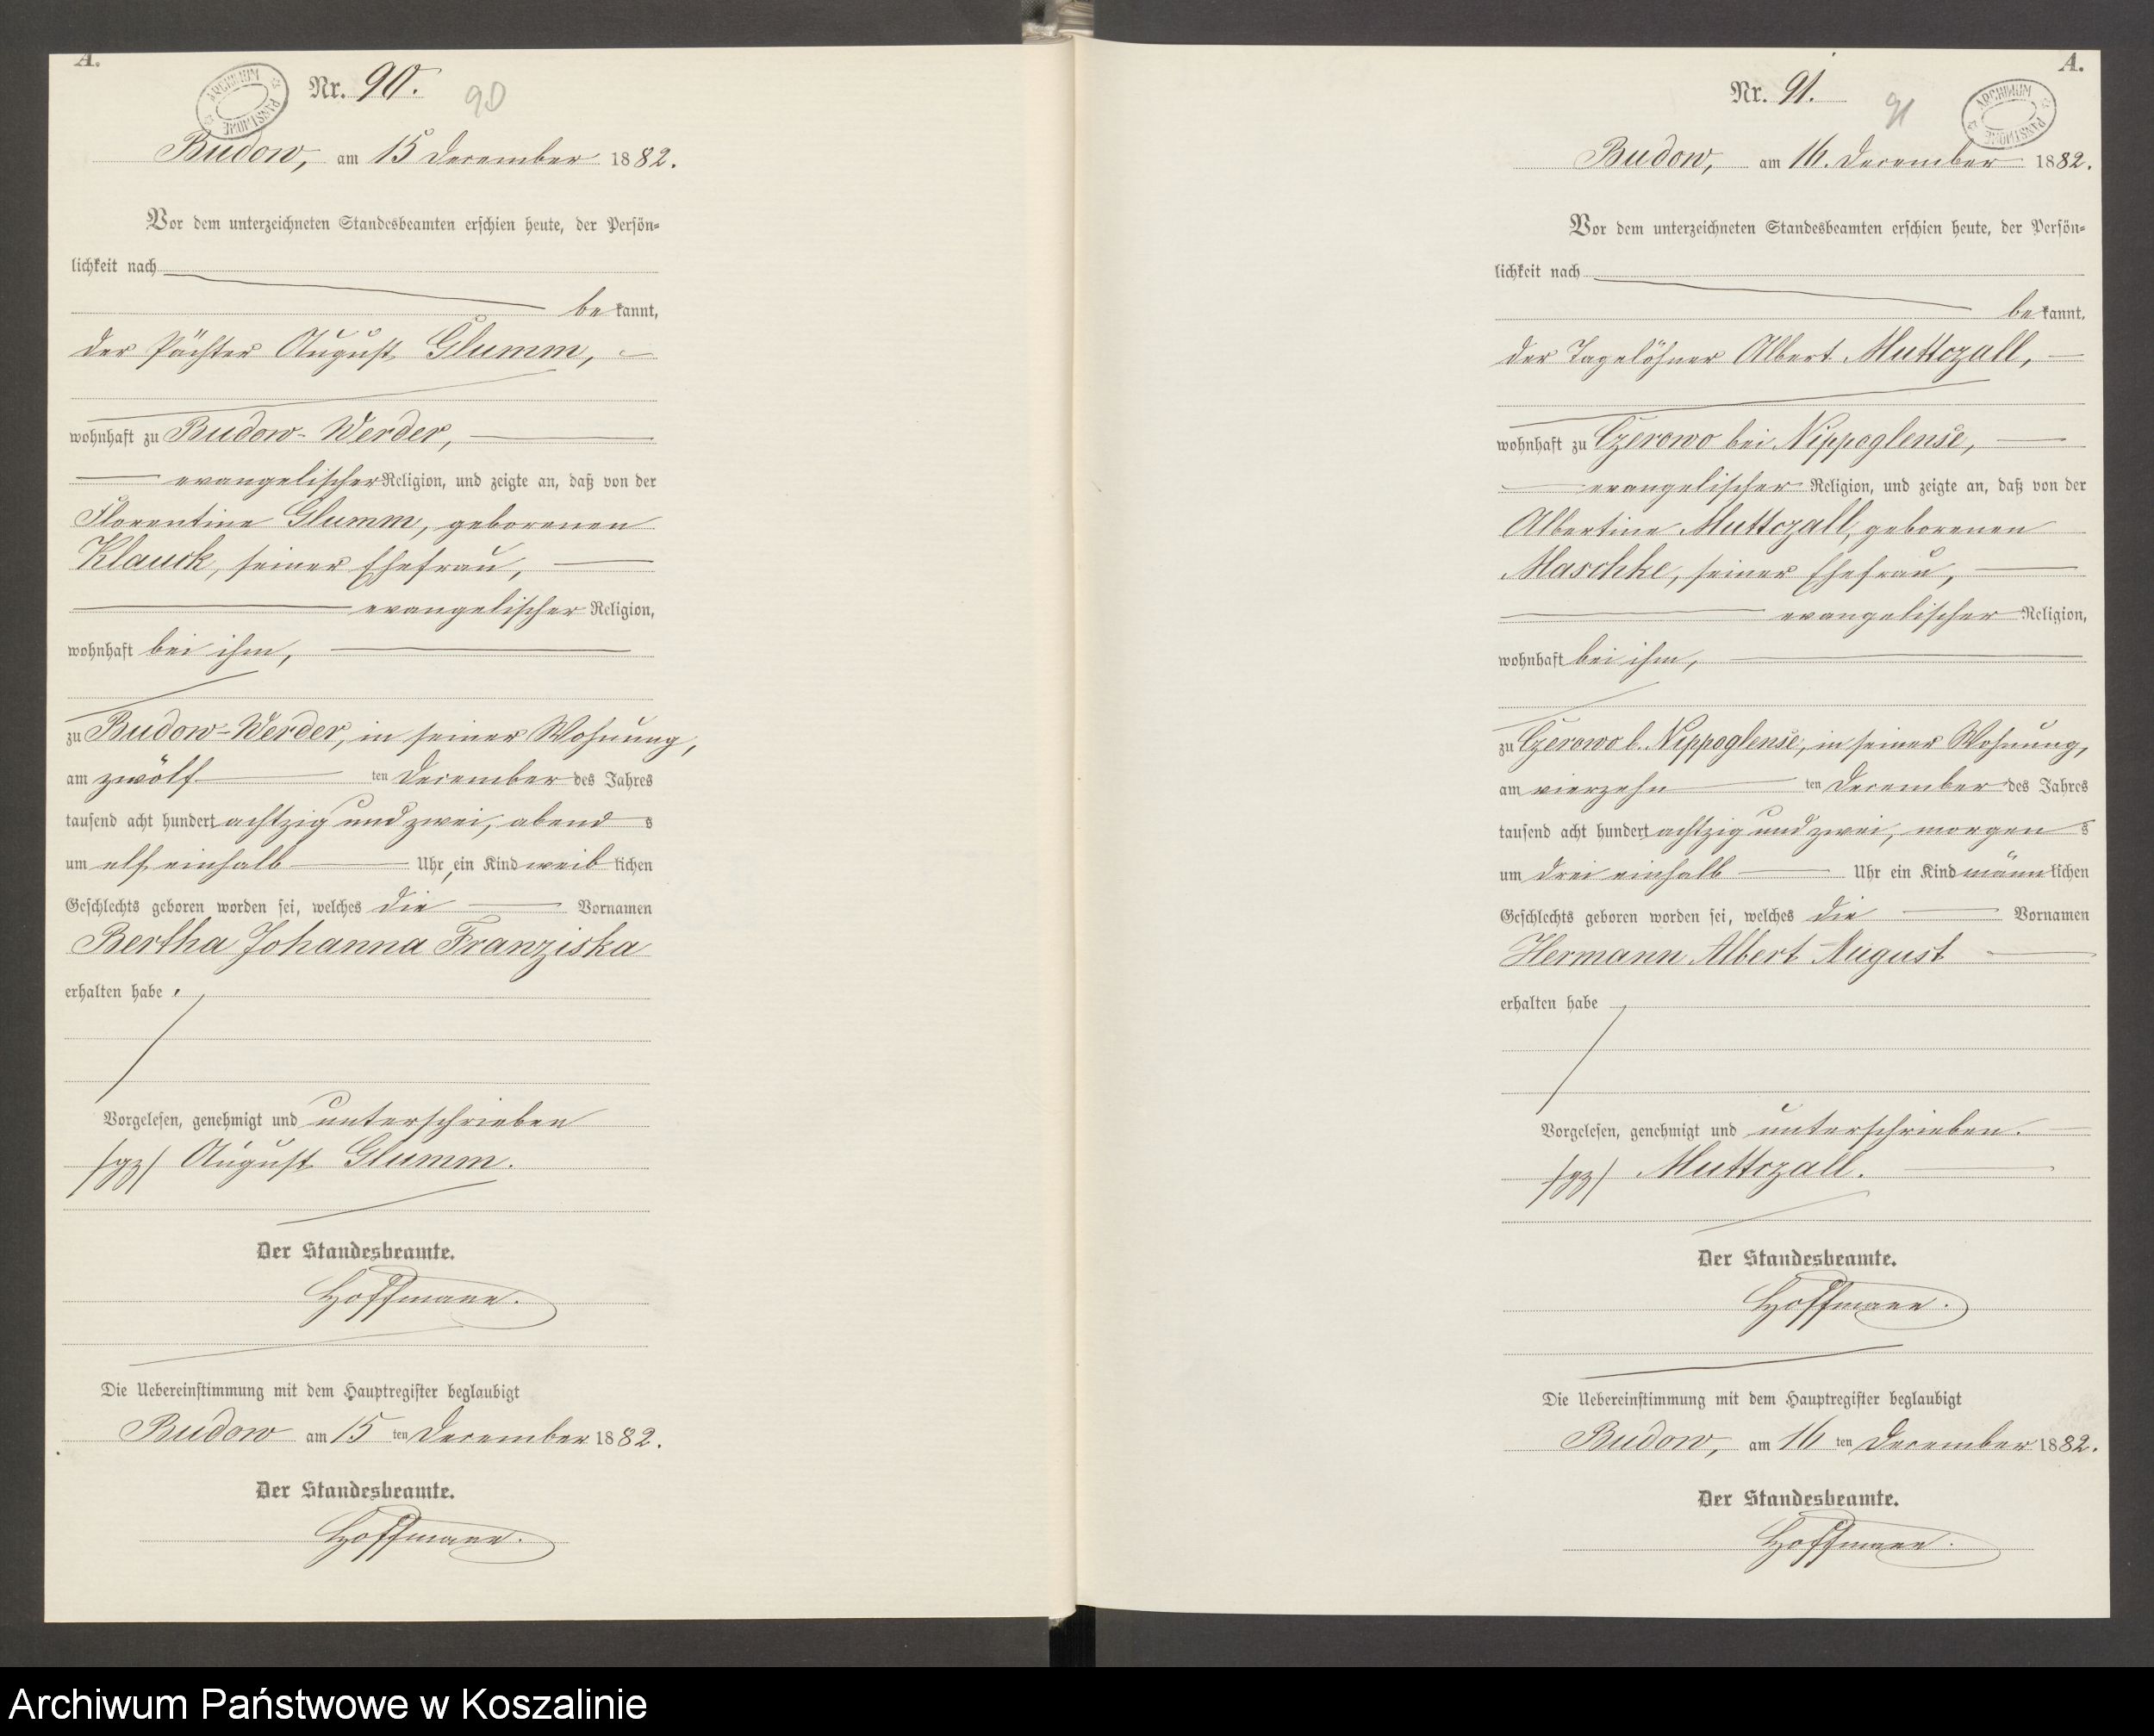 A.
ARCHIWUM PAŃSTWOWE
Nr. 90.
90
Budow, am 15 December 1882.
Vor dem unterzeichneten Standesbeamten erschien heute, der Persön-
lichkeit nach
bekannt,
der Pächter August Glumm,
wohnhaft zu Budow-Werder,
evangelischer Religion, und zeigte an, daß von der
Florentine Glumm, geborenen
Klauck, seiner Ehefrau,
evangelischer Religion,
wohnhaft bei ihm,
zu Budow-Werder, in seiner Wohnung,
am zwölf ten December des Jahres
tausend acht hundert achtzig und zwei, abend s
um elf einhalb Uhr, ein Kind weiblichen
Geschlechts geboren worden sei, welches die Vornamen
Bertha Johanna Franziska
erhalten habe.
Vorgelesen, genehmigt und unterschrieben
/gz/ August Glumm.
Der Standesbeamte.
Hoffmann.
Die Uebereinstimmung mit dem Hauptregister beglaubigt
Budow am 15 ten December 1882.
Der Standesbeamte.
Hoffmann.
A.
ARCHIWUM PAŃSTWOWE
Nr. 91.
91
Budow, am 16. December 1882.
Vor dem unterzeichneten Standesbeamten erschien heute, der Persön-
lichkeit nach
bekannt,
der Tagelöhner Albert Muttczall,
wohnhaft zu Czerowo bei Nippoglense,
evangelischer Religion, und zeigte an, daß von der
Albertine Muttczall, geborenen
Maschke, seiner Ehefrau,
evangelischer Religion,
wohnhaft bei ihm,
zu Czerowo b. Nippoglense, in seiner Wohnung,
am vierzehn ten December des Jahres
tausend acht hundert achtzig und zwei, morgen s
um drei einhalb Uhr ein Kind männlichen
Geschlechts geboren worden sei, welches die Vornamen
Hermann Albert August
erhalten habe
Vorgelesen, genehmigt und unterschrieben.
/gz/ Muttczall.
Der Standesbeamte.
Hoffmann.
Die Uebereinstimmung mit dem Hauptregister beglaubigt
Budow, am 16 ten December 1882.
Der Standesbeamte.
Hoffmann.
Archiwum Państwowe w Koszalinie